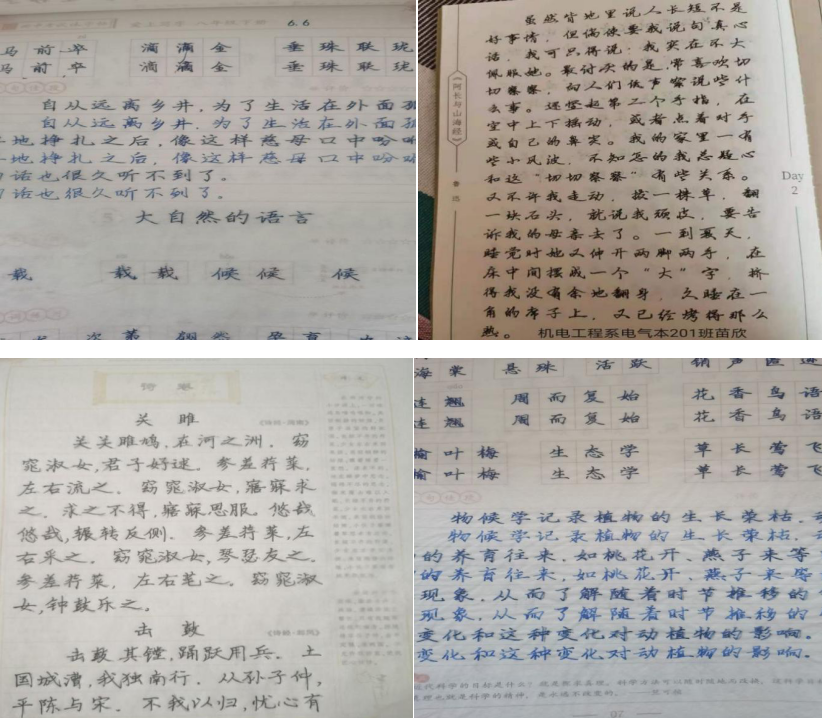 6.6
马前卒 滴滴金 垂珠联珑
马前卒 滴滴金 垂珠联珑
自从远离乡井,为了生活在外面孤
自从远离乡井,为了生活在外面孤
地挣扎之后,像这样慈母口中吩咐
地挣扎之后,像这样慈母口中吩咐
话也很久听不到了。
话也很久听不到了。
大自然的语言
载 载载 候候 候
虽然背地里说人长短不是
好事情,但倘使要我说句真心
话,我可只得说:我实在不大
佩服她。最讨厌的是常喜欢切
切察察,向人们低声絮说些什
么事。还竖起第二个手指,在
空中上下摇动,或者点着对手
或自己的鼻尖。我的家里一有
些小风波,不知怎的我总疑心
和这“切切察察”有些关系。
又不许我走动,拔一株草,翻
一块石头,就说我顽皮,要告
诉我的母亲去了。一到夏天,
睡觉时她又伸开两脚两手,在
床中间摆成一个“大”字,挤
得我没有余地翻身,久睡在一
角的席子上,又已经烤得那么
热。
《阿长与山海经》
鲁迅
Day
2
机电工程系电气本201班苗欣
诗经
关雎
《诗经·周南》
关关雎鸠,在河之洲。窈
窕淑女,君子好逑。参差荇菜,
左右流之。窈窕淑女,寤寐求
之。求之不得,寤寐思服。悠哉
悠哉,辗转反侧。参差荇菜,左
右采之。窈窕淑女,琴瑟友之。
参差荇菜,左右芼之。窈窕淑
女,钟鼓乐之。
击鼓
《诗经·邶风》
击鼓其镗,踊跃用兵。土
国城漕,我独南行。从孙子仲,
平陈与宋。不我以归,忧心有
海棠 悬珠 活跃 销声匿迹
连翘 周而复始 花香鸟语
连翘 周而复始 花香鸟语
榆叶梅 生态学 草长莺飞
榆叶梅 生态学 草长莺飞
物候学记录植物的生长荣枯,动
物候学记录植物的生长荣枯,动
的养育往来,如桃花开、燕子来等
的养育往来,如桃花开、燕子来等
现象,从而了解随着时节推移的
现象,从而了解随着时节推移的
变化和这种变化对动植物的影响。
变化和这种变化对动植物的影响。
07